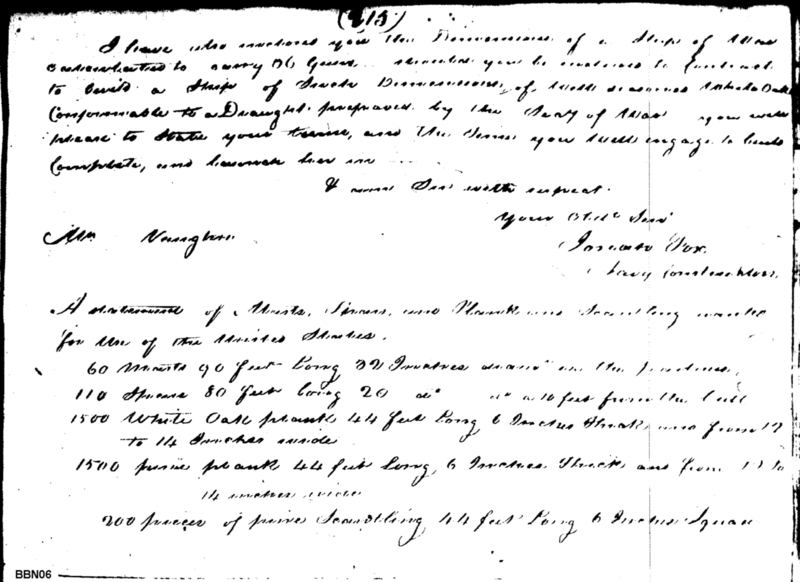 (215)
I have also inclosed you the Dimensions of a Ship of War
calculated to carry 36 Guns should you be inclined to Contract
to build a Ship of such Dimensions, of well seasoned White Oak
Conformable to a Draught prepared by the Secy of War you will
please to state your terms, and the time you will engage to build
Complete, and launch her in
I am Sir with respect
Your Obdt Serv
Josiah Fox
Navy Constructor
Mr Vaughan
A statement of Masts, Spars, and Plank and Scantling wanted
for Use of the United States.
60 Masts 90 feet Long 32 Inches diamr in the partners,
110 Spars 80 feet long 20 do do a 10 feet from the butt
1500 White Oak plank 44 feet Long, 6 Inches thick and from 12
to 14 Inches wide
1500 pine plank 44 feet Long, 6 Inches thick and from 12 to
14 inches wide
200 pieces of pine Scantling, 44 feet Long 6 Inches Square
BBN06